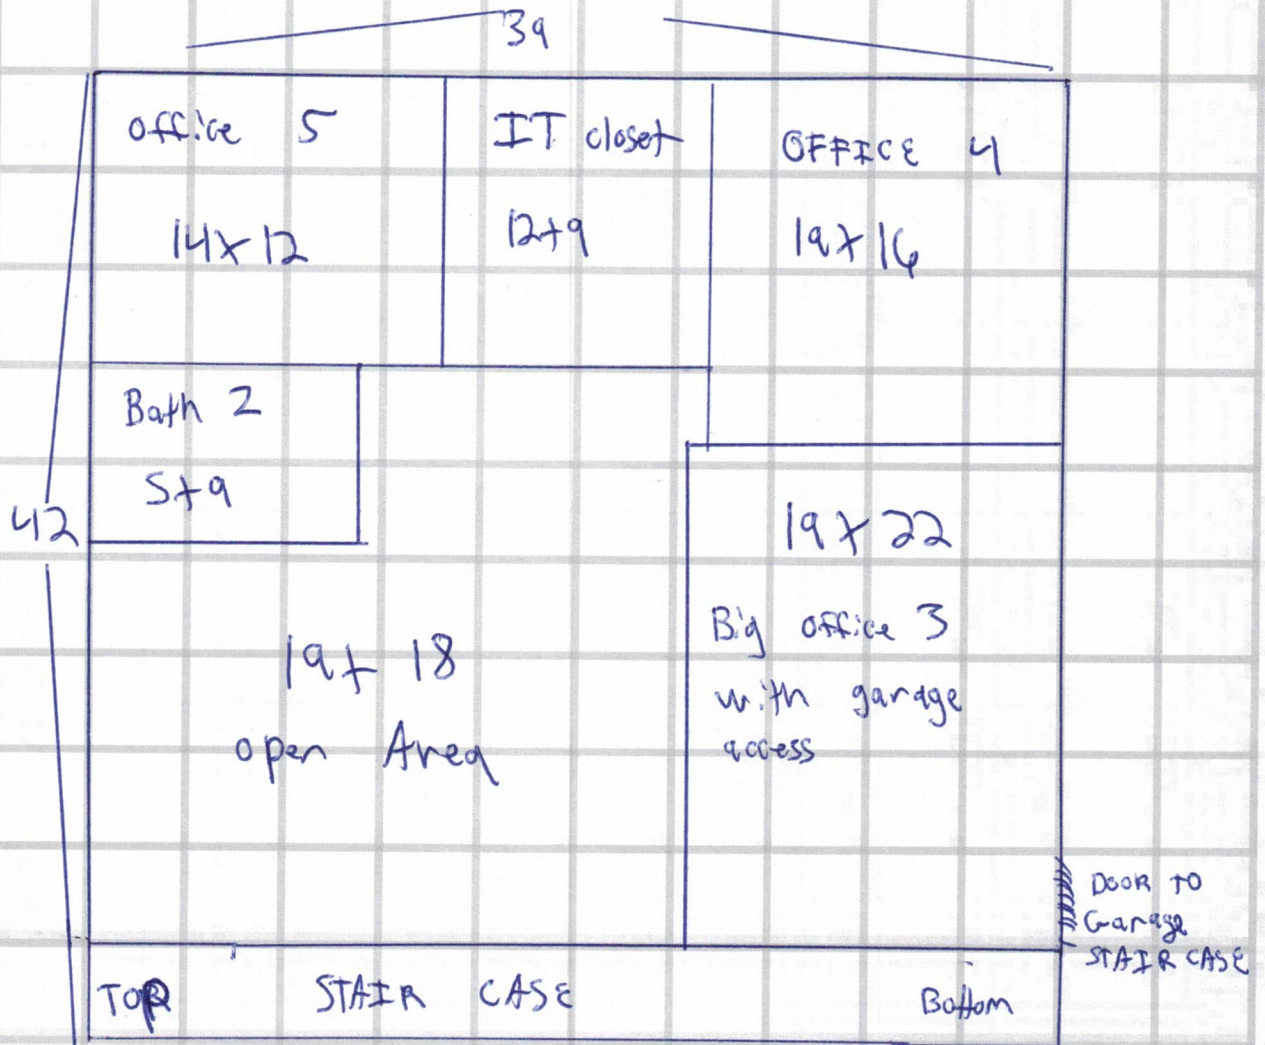 39
office 5
IT closet
OFFICE 4
14x12
12x9
19x16
Bath 2
5x9
42
19x22
Big office 3
with garage
access
19x18
open Area
DOOR TO
Garage
STAIR CASE
TOP
STAIR CASE
Bottom